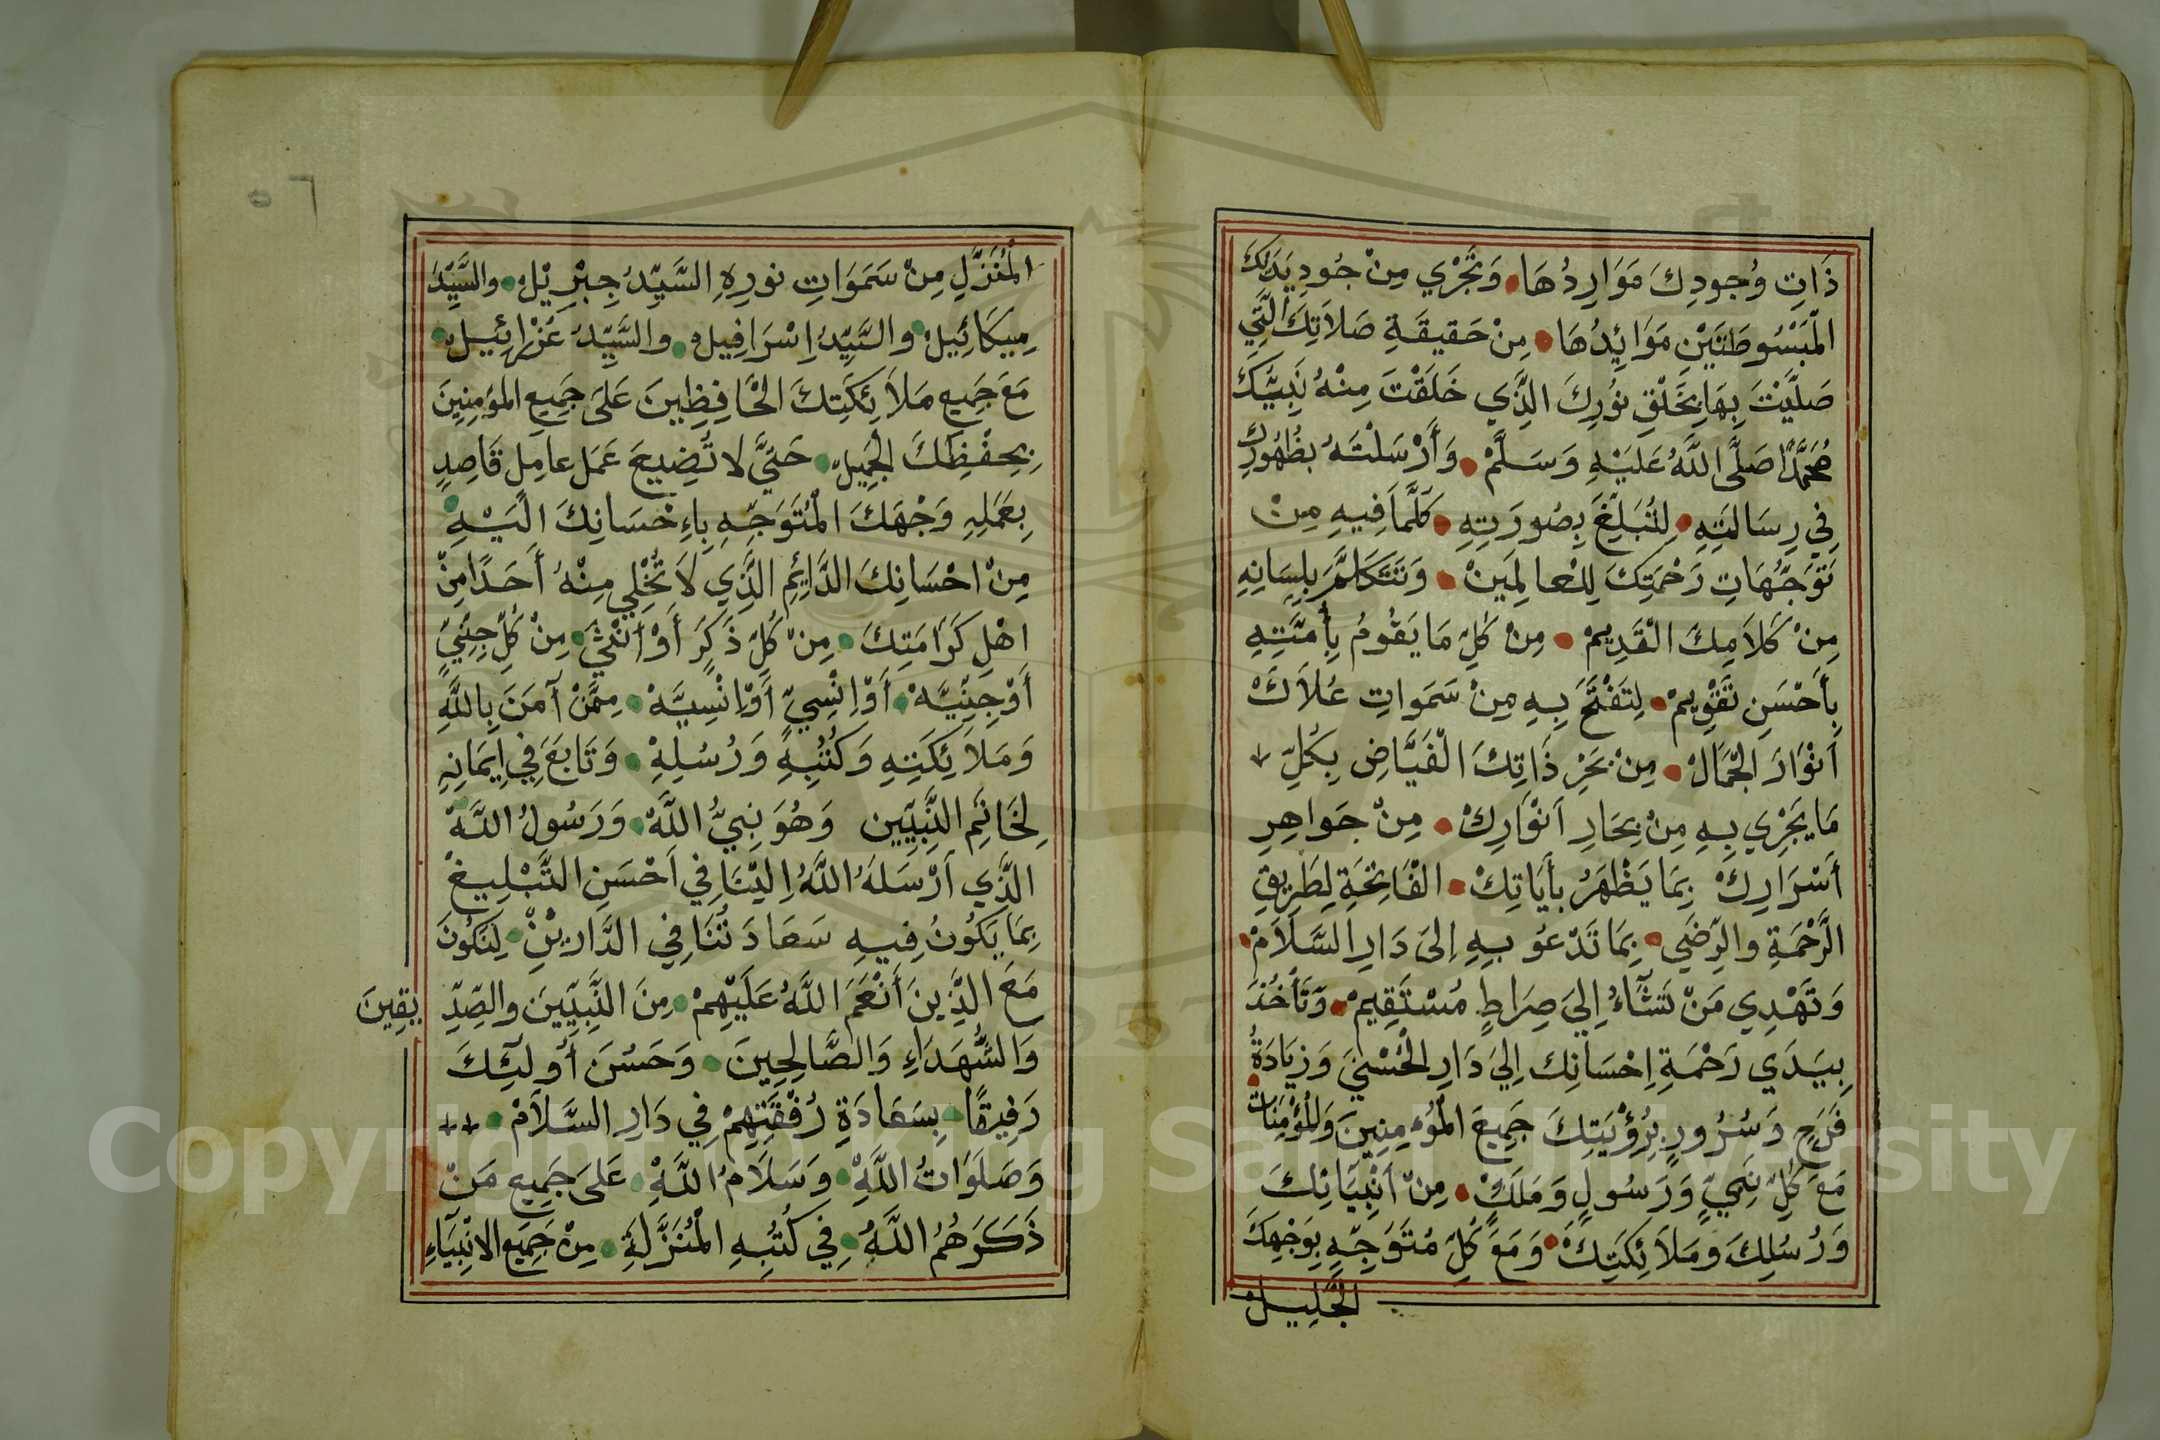 ذَاتِ وُجودِكَ مَوَارِدُهَا وَتَجْرِي مِنْ جُودِ يَدَيْكَ
الْمَبْسُوطَتَيْنِ مَوَائِدُهَا مِنْ حَقيقَةِ صَلاَتِكَ الَّتِي
صَلَّيْتَ بِهَا بِخَلْقِ نُورِكَ الَّذِي خَلَقْتَ مِنْهُ نَبِيَّكَ
مُحَمَّدًا صَلَّى اللَّهُ عَلَيْهِ وَسَلَّمْ وَأَرْسَلْتَهُ بِظُهُورِكَ
فِي رِسَالَتِهِ لِتُبَلِّغَ بِصُورَتِهِ كُلَّمَا فِيهِ مِنْ
تَوَجُّهَاتِ رَحْمَتِكَ لِلْعالَمَينْ وَتَتَكَلَّمَ بِلِسَانِهِ
مِنْ كَلاَمِكَ الْقَدِيمْ مِنْ كُلِّ مَا يَقُومُ بِأُمَّتِهِ
بِأَحْسَنِ تَقْوِيمْ لِتَفْتَحَ بِهِ مِنْ سَمَوَاتِ عُلاَكْ
أَنْوَارَ الْجَمَالْ مِنْ بَحْرِ ذَاتِكَ الْفَيَّاضِ بِكُلِّ
مَا يَجْرِي بِهِ مِنْ بِحَارِ أَنْوَارِكْ مِنْ جَواهِرِ
أَسْرَارِكْ بِمَا يَظْهَرُ بِأَيَاتِكْ الْفَاتِحَةِ لِطَرِيقِ
الرَّحْمَةِ والرِّضَى بِمَا تَدْعُو بِهِ إلىَ دَارِ السَّلَامْ
وَتَهْدِي مَنْ تَشَآءُ إِلَي صِرَاطٍ مُسْتَقِيمْ وَتَأْخُذَ
بِيَدَي رَحْمَةِ إِحْسَانِكَ إِلَيَ دَارِ الْحُسْنَي وَزِيَادَةُ
فَرَحٍ وَسُرُورٍ بِرُؤْيَتِكَ جَمِيعَ الْمُؤْمِنِينَ وَالْمُؤْمِنَات
مَعَ كُلِّ نَبِيٍّ وَرَسُولٍ وَمَلَكٍ مِنْ أَنْبِيَائِكَ
وَرُسُلِكَ وَمَلاَئِكَتِكَ وَمَعَ كُلِّ مُتَوَجِّهٍ بِوَجْهِكَ
الْجَلِيلْ
٥٦
الْمُنَزَّلِ مِنْ سَمَوَاتِ نورِهِ السَّيِّدُ جِبْرِيْلْ والسَّيِّدُ
مِيكَائِيلْ والسَّيِّدُ إِسْرَافِيلْ والسَّيِّدُ عَزْرَائِيلْ
مَعَ جَمِيعِ مَلاَئِكَتِكَ الْحَافِظِينَ عَلَى جَمِيعِ المؤمِنِينَ
بِحِفْظِكَ الْجَمِيلْ حَتَّى لا تُضِيعَ عَمَل عامِلٍ قَاصِدٍ
بِعَمَلِهِ وَجْهَكَ الْمُتَوَجِّهِ بِإِحْسَانِكَ الَيْهِ
مِنْ احْسَانِكَ الدَّائِمِ الَّذِي لاَ تُخْلِي مِنْهُ أَحَدًا مِنْ
اهْلِ كَرَامَتِكَ مِنْ كُلِّ ذَكَرٍ أَوْ أُنْثَي مِنْ كُلِّ جِنِّيٍّ
أَوْ جِنِّيَّهْ أَوْ إِنْسِيٍّ أَوْ إِنْسِيَّهْ مِمَّنْ آمَنَ بِاللَّهِ
وَمَلاَئِكَتِهِ وَكُتُبِهِ وَرُسُلِهِ وَتَابَعَ فِي إِيمَانِهِ
لِخَاتَمِ النَّبِيِّين وَهُوَ نَبِيُّ اللَّهْ وَرَسُولُ اللَّهْ
الَّذِي أَرْسَلَهُ اللَّهُ إِلَيْنَا فِي أَحْسَنِ التَّبْلِيغْ
بِمَا يَكُونُ فِيهِ سَعَادَتُنَا فِي الدَّارَيْنْ لِنَكُونَ
مَعَ الَّذِينَ أَنْعَمَ اللَّهُ عَلَيْهِمْ مِنَ النَّبِيِّينَ والصِّدِّيقِينَ
وَالشُّهَدَاءِ وَالصَّالِحِينَ وَحَسُنَ أُولَئِكَ
رَفِيقًا بِسَعَادَةِ رُفْقَتِهِمْ فِي دَارِ السَّلاَمْ
وَصَلَوَاتُ اللَّهْ وَسَلَامُ اللَّهْ عَلَى جَمِيعِ مَنْ
ذَكَرَهُمُ اللَّهُ فِي كُتُبِهِ الْمُنَزَّلَةِ مِنْ جَمِيعِ الانْبِيَآءِ
Copyright © King Saud University